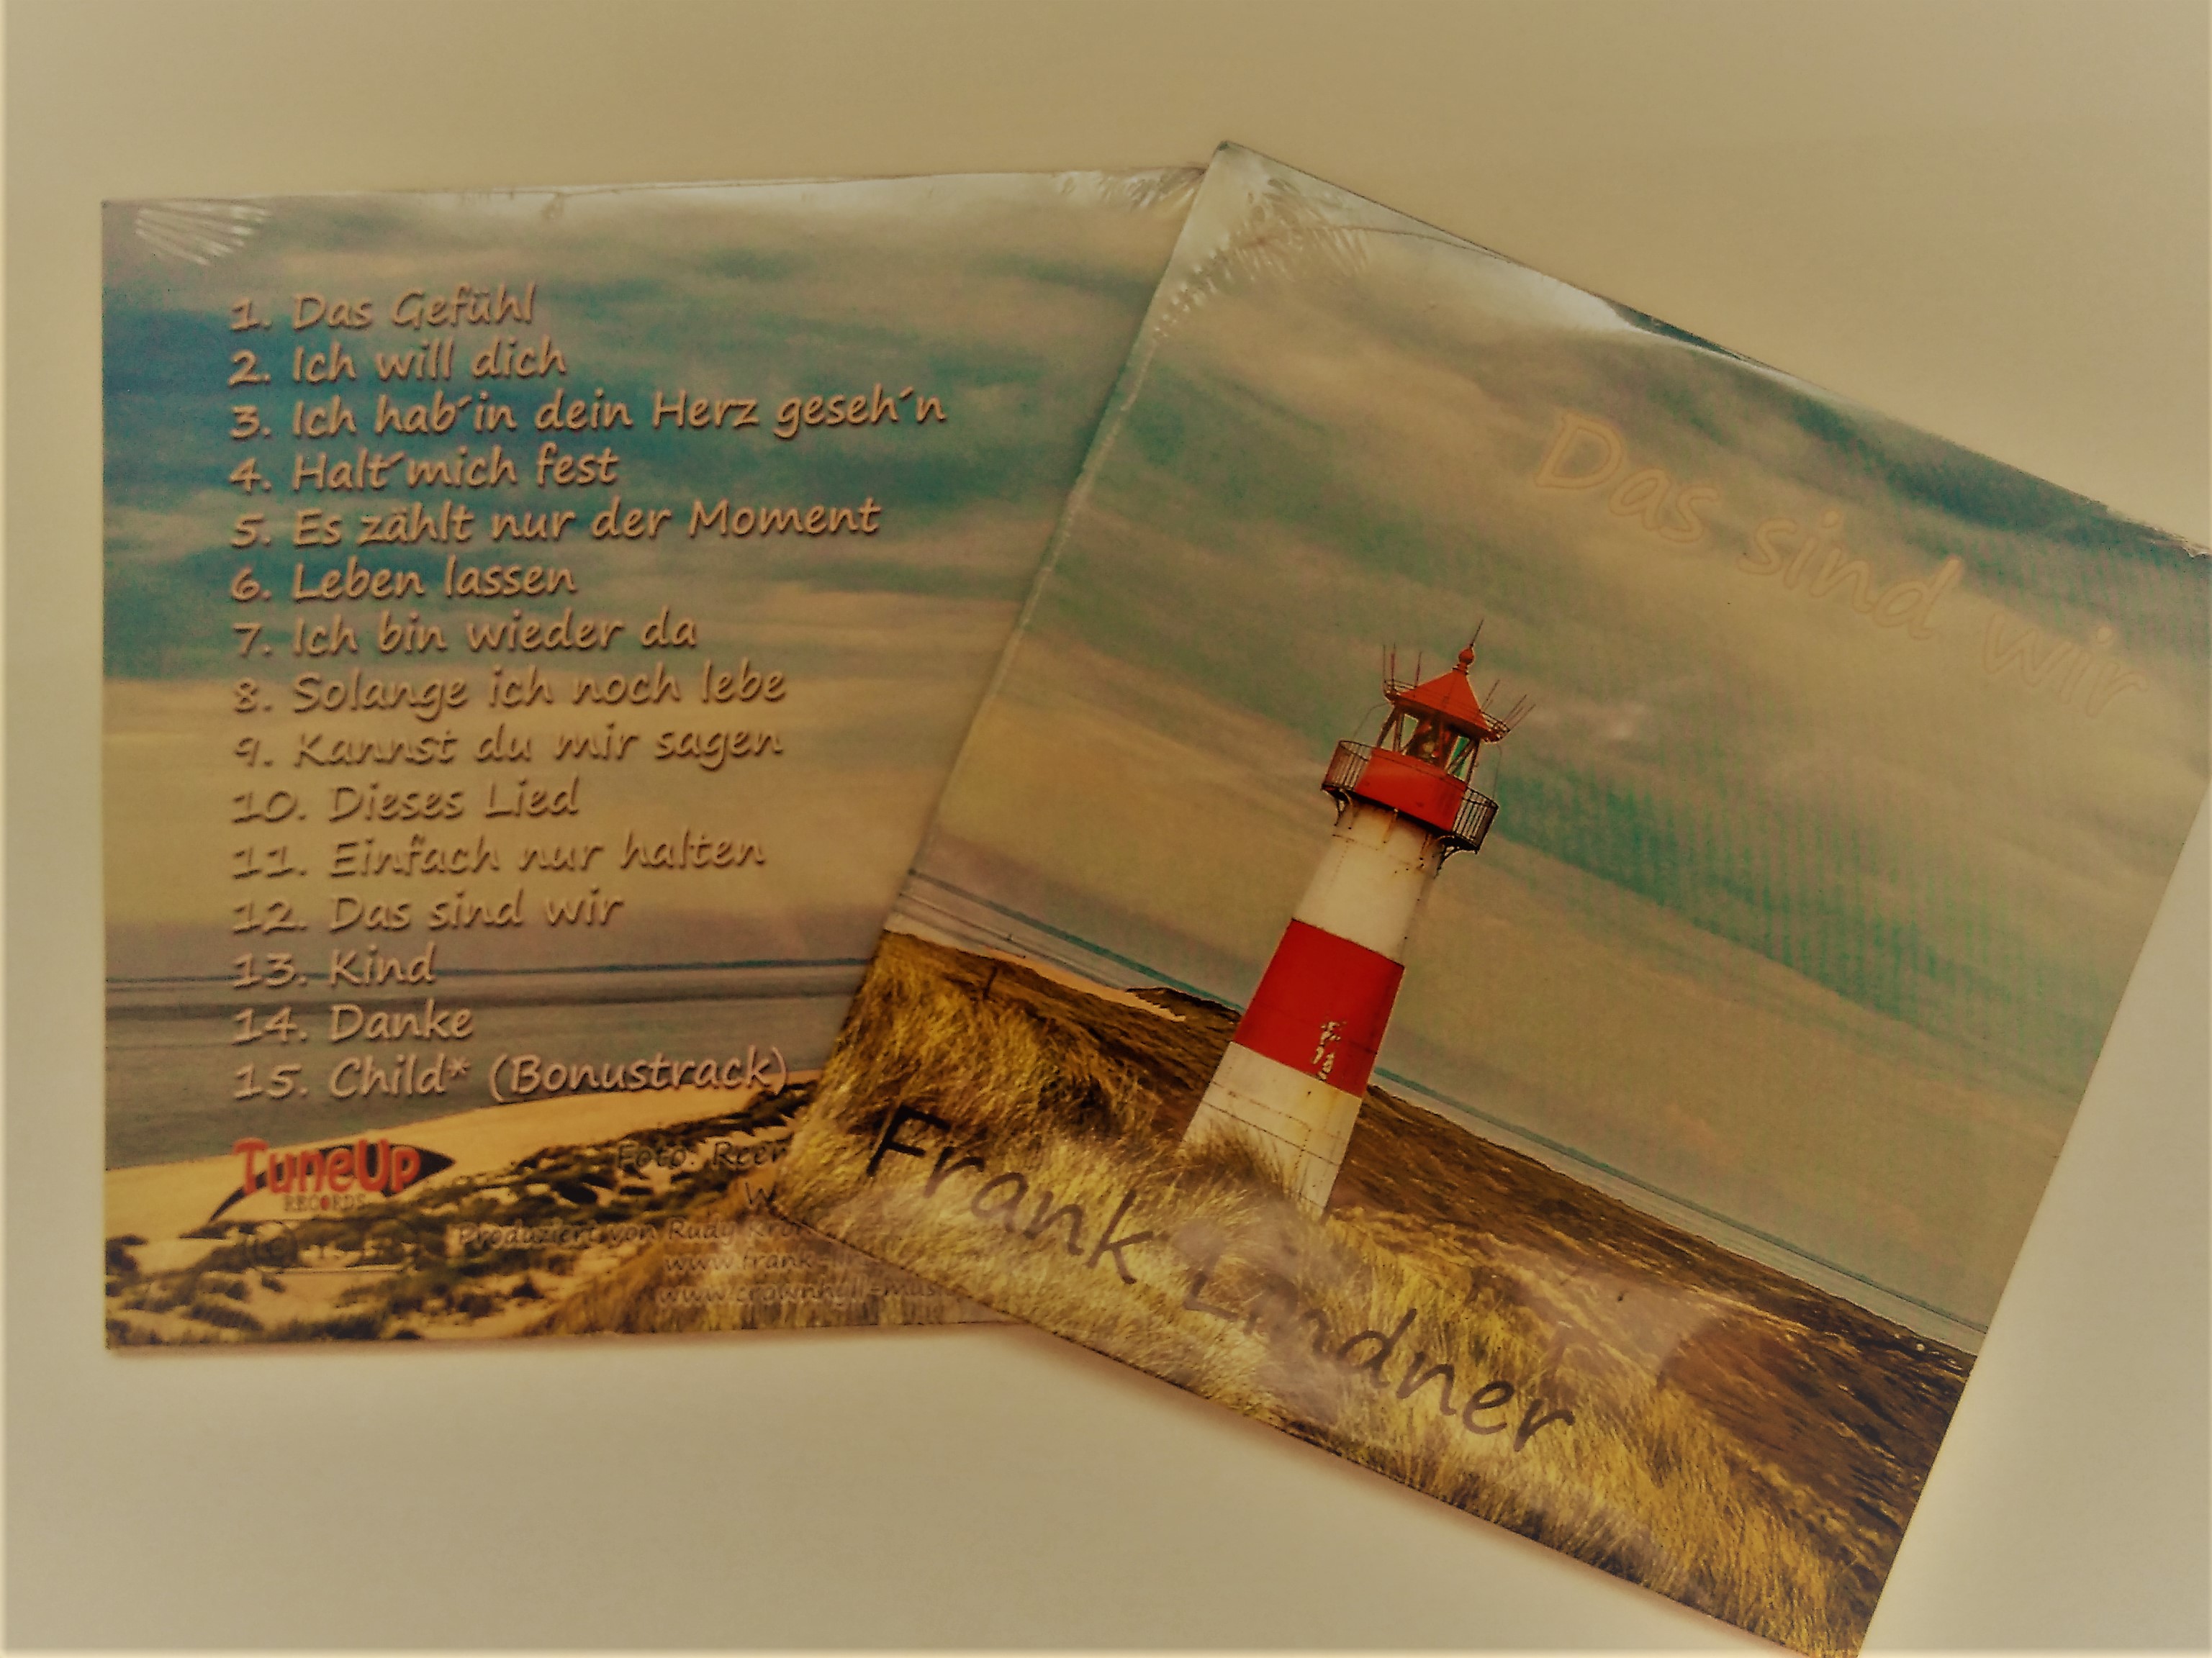 1. Das Gefühl
2. Ich will dich
3. Ich hab´in dein Herz geseh´n
4. Halt´mich fest
5. Es zählt nur der Moment
6. Leben lassen
7. Ich bin wieder da
8. Solange ich noch lebe
9. Kannst du mir sagen
10. Dieses Lied
11. Einfach nur halten
12. Das sind wir
13. Kind
14. Danke
15. Child* (Bonustrack)
TuneUp
RECORDS
Foto:
Produziert von Rudy
www.frank
www.crownhyll-mus
Das sind wir
Frank Lindner